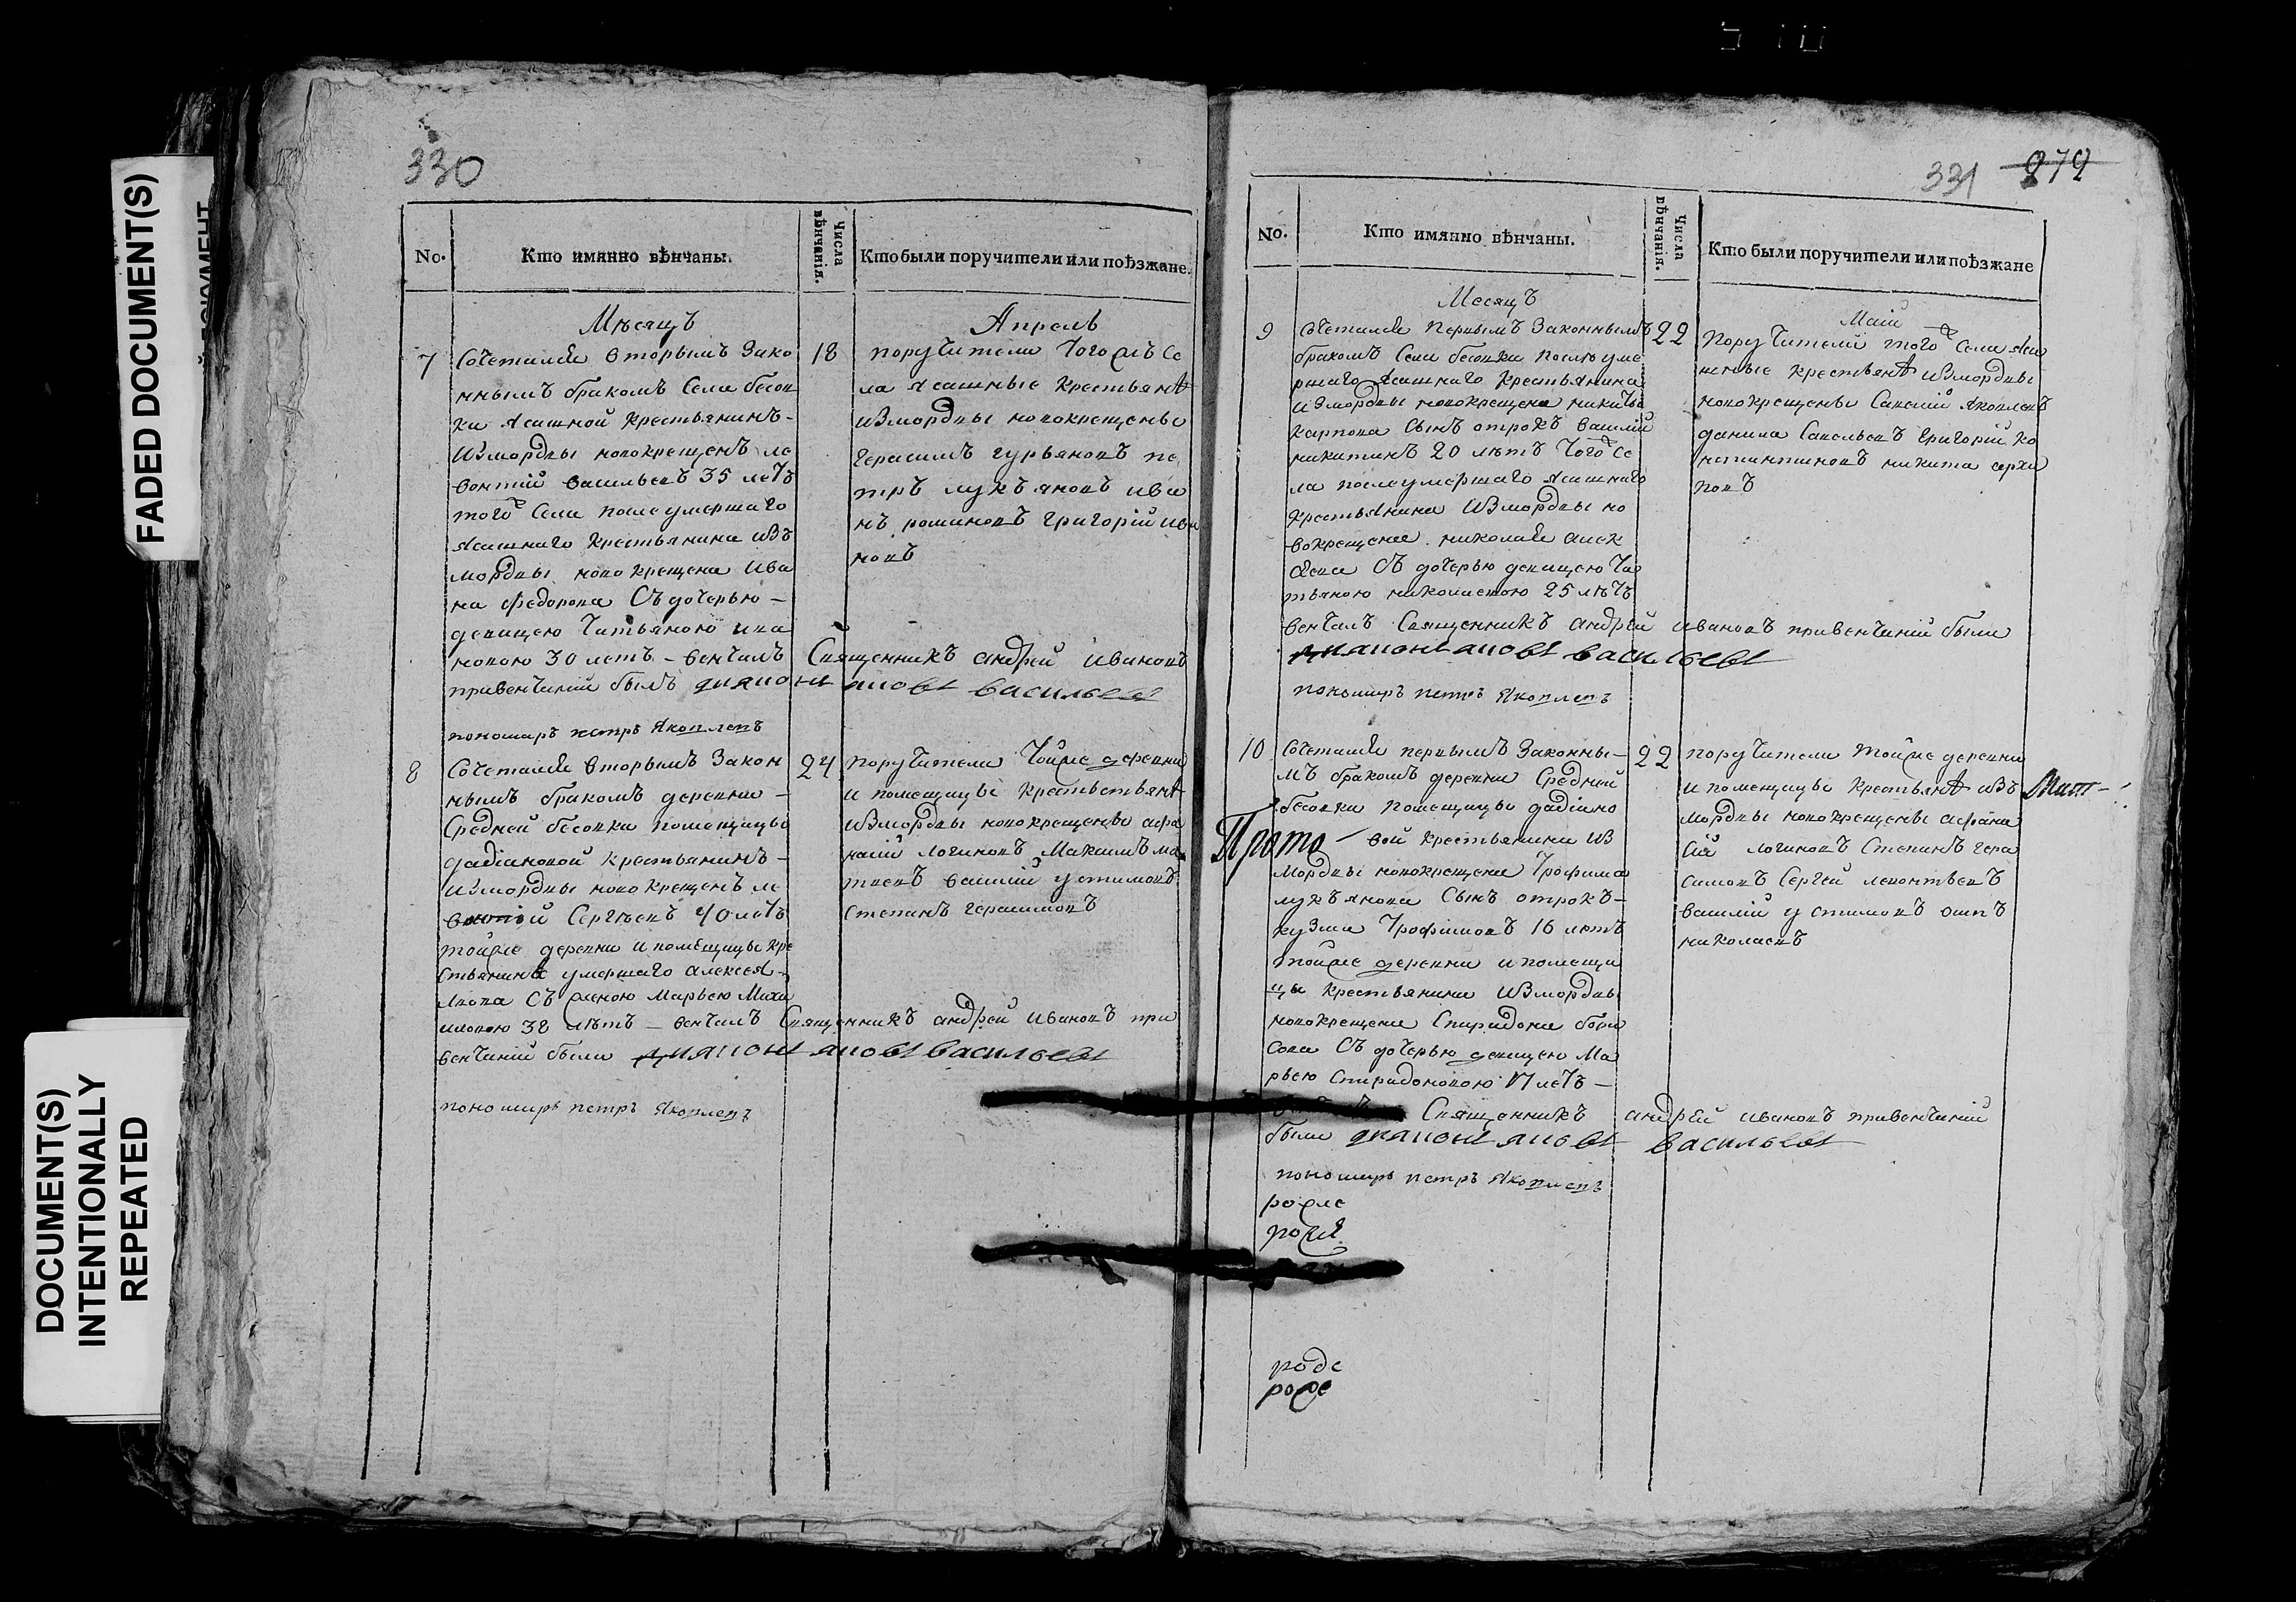 FADED DOCUMENT(S)
DOCUMENT(S)
INTENTIONALLY
REPEATED
330
No.
Кто имянно вѣнчаны.
Числа
вѣнчанія.
Кто были поручители или поѣзжане.
Мѣсяцъ
Апрель
7
Сочетался вторымъ зако
ннымъ бракомъ села бесов
ки ясашной крестьянинъ -
измордвы новокрещенъ ле
вонтий васильевъ 35 летъ
того села после умершаго
ясашнаго крестьянина изъ
мордвы новокрещена ива
на федорова съ дочерью -
девицею татьяною ива
новою 30 летъ - венчалъ священникъ андрей ивановъ
привенчании былъ диаконъ иовъ васильевъ
пономарь петръ яковлевъ
18
поручители тогожъ се
ла ясашные крестьяня
измордвы новокрещены
герасимъ гурьяновъ пе
тръ лукъяновъ ива
нъ родионовъ григорий ива
новъ
8
Сочетался вторымъ закон
нымъ бракомъ деревни -
средней бесовки помещицы
дадіановой крестьянинъ -
измордвы новокрещенъ ле
вонтий сергѣевъ 40 летъ
тойже деревни и помещицы кре
стьянина умершаго алексея -
съ женою марьею миха
иловою 38 лѣтъ - венчалъ священникъ андрей ивановъ при
венчании были диаконъ иовъ васильевъ
пономарь петръ яковлевъ
24
поручители тойже деревни
и помещицы крестьестьяня
измордвы новокрещены афа
насий логиновъ максимъ ма
твеевъ василий устимовъ
степанъ герасимовъ
331
272
No.
Кто имянно вѣнчаны.
Числа
вѣнчанія.
Кто были поручители или поѣзжане
Месяцъ
Маій
9
сочетался первымъ законнымъ
бракомъ села бесовки после уме
ршаго ясашнаго крестьянина
измордвы новокрещена никиты
карпова сынъ отрокъ василий
никитинъ 20 лѣтъ того се
ла после умершаго ясашнаго
крестьянина измордвы но
вокрещена николая алек
сѣева съ дочерью девицею та
тьяною николаевою 25 лѣтъ
венчалъ священникъ андрей ивановъ привенчании были
диаконъ иовъ васильевъ
пономарь петръ яковлевъ
22
поручители того села яса
шные крестьяня измордвы
новокрещены савелий яковлевъ
данила савельевъ григорий ко
нстантиновъ никита
10
сочетался первымъ законны -
мъ бракомъ деревни средней
бесовки помещицы дадіано
Прото - вой крестьянина из
мордвы новокрещена трофима
лукъянова сынъ отрокъ -
кузма трофимовъ 16 лѣтъ
тойже деревни и помещи
цы крестьянина измордвы
новокрещена спиридона бори
сова съ дочерью девицею ма
рьею спиридоновою 17 летъ -
священникъ андрей ивановъ привенчании
были диаконъ иовъ васильевъ
пономарь петръ яковлевъ
22
поручители тойже деревни
и помещицы крестьяня изъ
мордвы новокрещены афана
сий логиновъ степанъ гера
симовъ сергей левонтьевъ
василий устимовъ осипъ
николаевъ